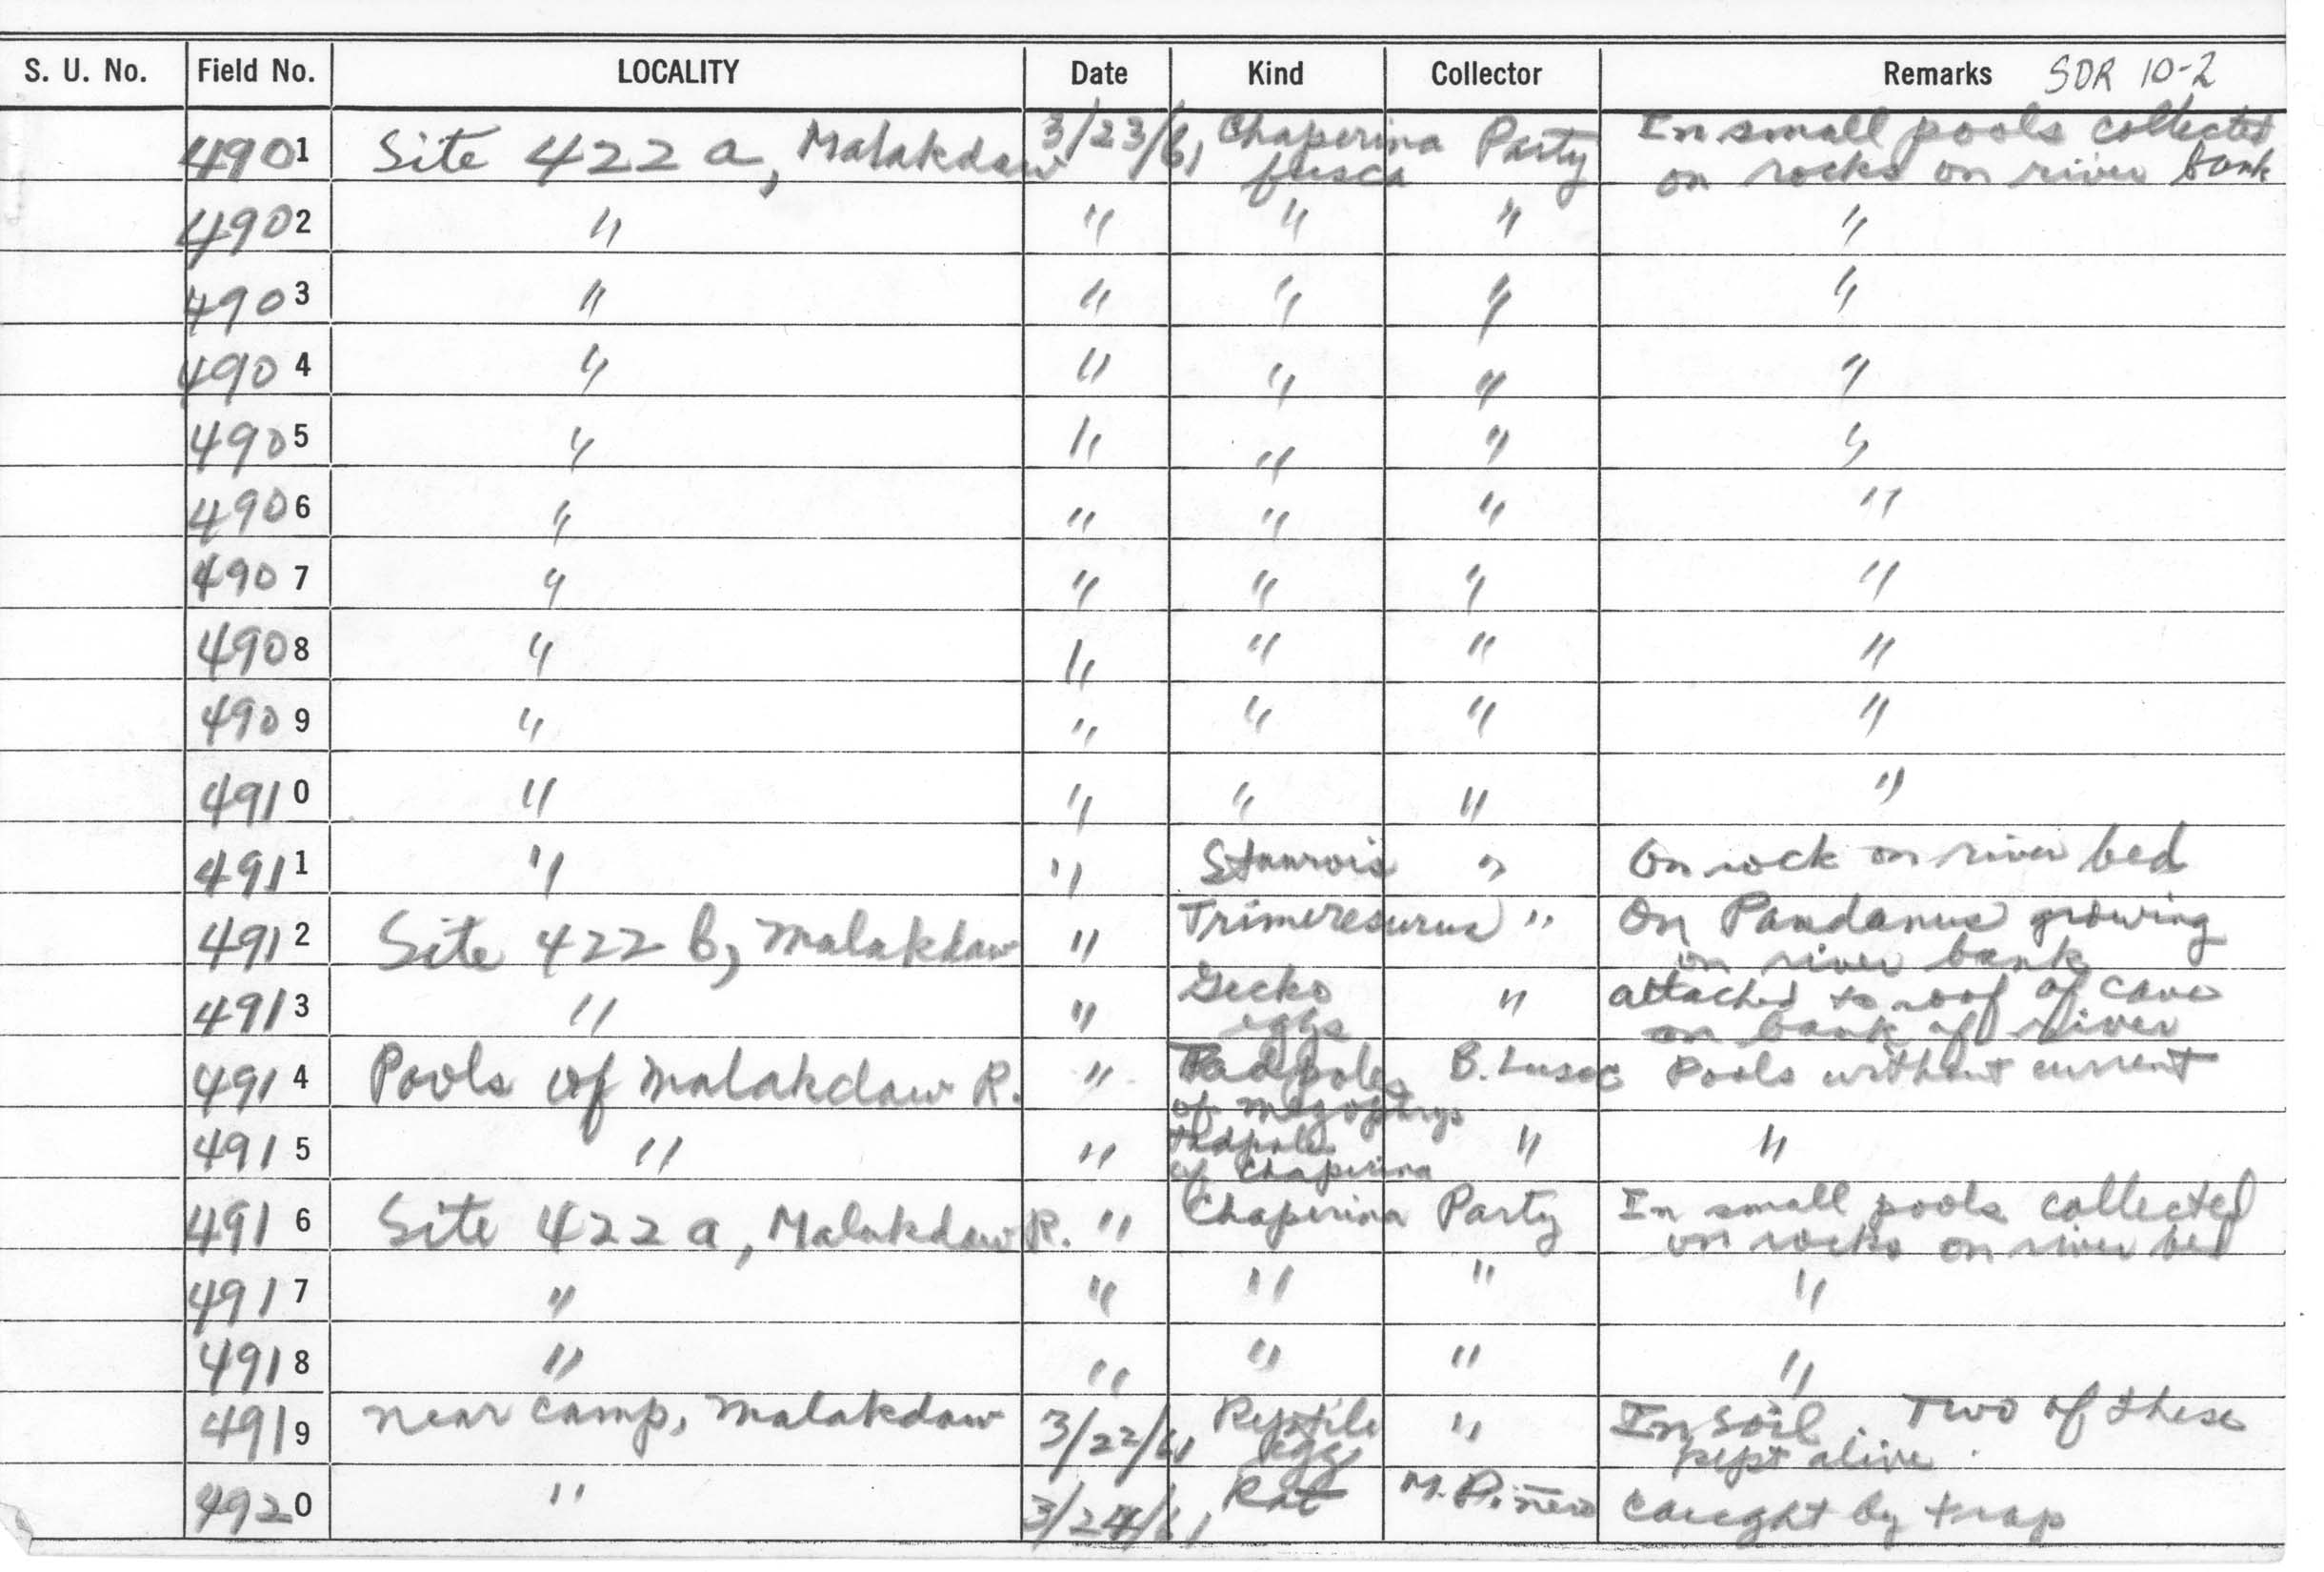 S. U. No. Field No. LOCALITY Date Kind Collector Remarks SDR 10-2
4901 Site 422 a, Malakdaw 3/23/61 Chaperina fusca Party In small pools collected on rocks on river bank
4902 " " " " "
4903 " " " " "
4904 " " " " "
4905 " " " " "
4906 " " " " "
4907 " " " " "
4908 " " " " "
4909 " " " " "
4910 " " " " "
4911 " " Staurois " On rock on river bed
4912 Site 422 b, Malakdaw " Trimeresurus " On Pandanus growing on river bank
4913 " " Gecko eggs " attached to roof of cave on bank of river
4914 Pools of Malakdaw R. " Tadpoles of Megophrys B. Pools without current
4915 " " tadpoles of Chaperina " "
4916 Site 422 a, Malakdaw R. " Chaperina Party In small pools collected on rocks on river bed
4917 " " " " "
4918 " " " " "
4919 near camp, Malakdaw 3/22/61 Reptile egg " In soil. Two of these kept alive.
4920 " 3/24/61 Rat M. Caught by trap